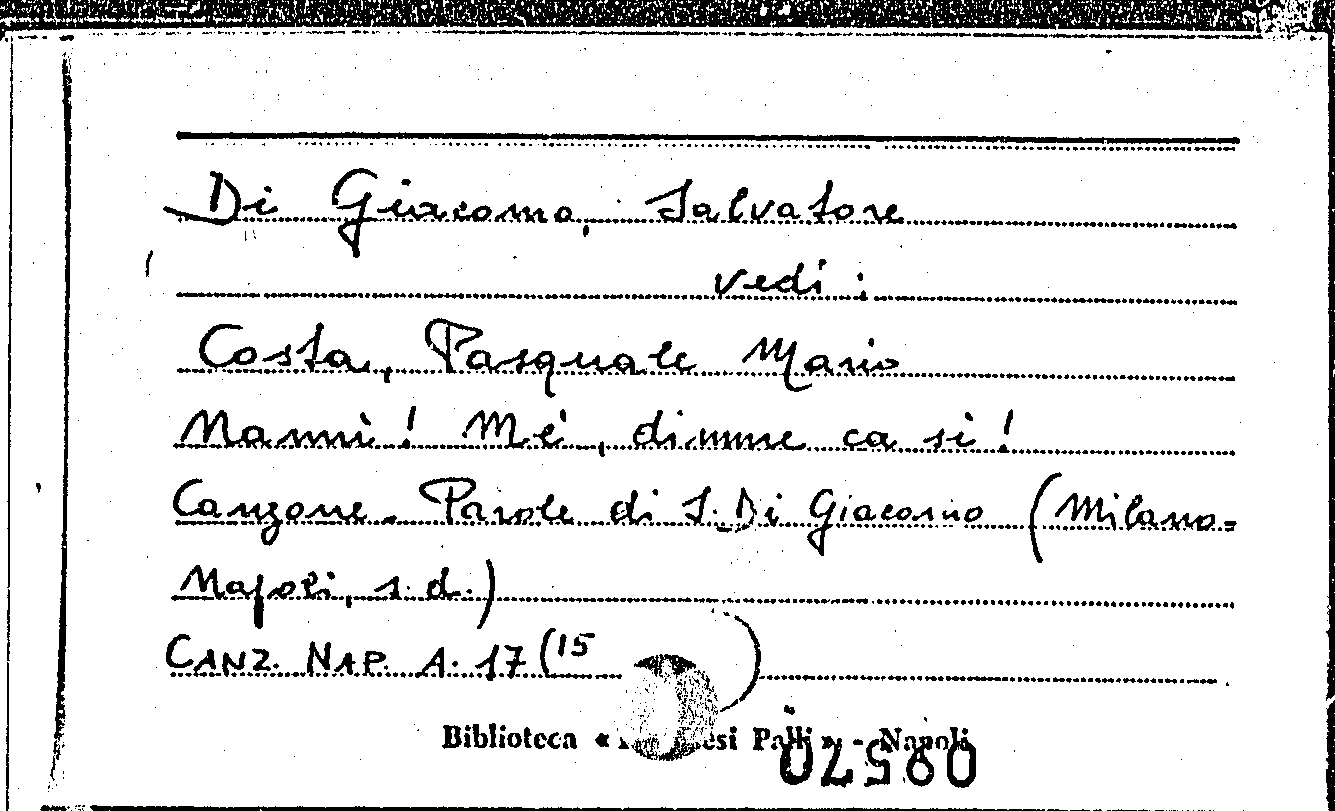 Di Giacomo, Salvatore
vedi:
Costa, Pasquale Mario
Nannì! Mé, dimme ca sì!
Canzone. Parole di S. Di Giacomo (Milano-
Napoli, s.d.)
CANZ. NAP. A. 17 (15 )
Biblioteca « Palli » - Napoli
08570